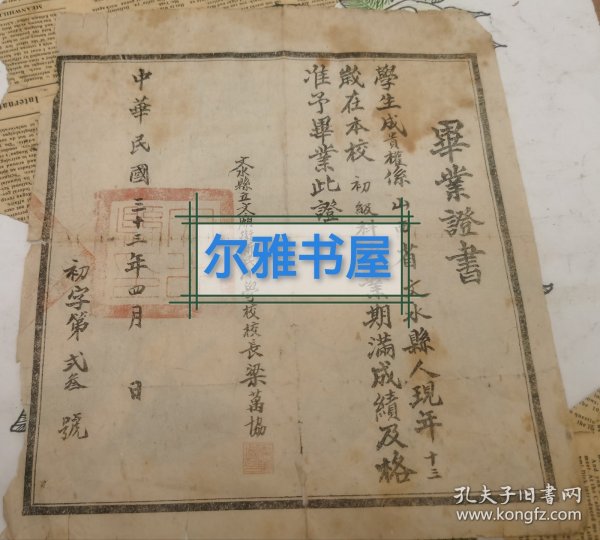 畢業證書
學生成貴權係山西省文水縣人現年十三
歲在本校初級科業期滿成績及格
准予畢業此證
文水縣立文校校長梁萬協
中華民國三十三年四月 日
初字第弍叁號
尔雅书屋
孔夫子旧书网
www.kongfz.com
Internat